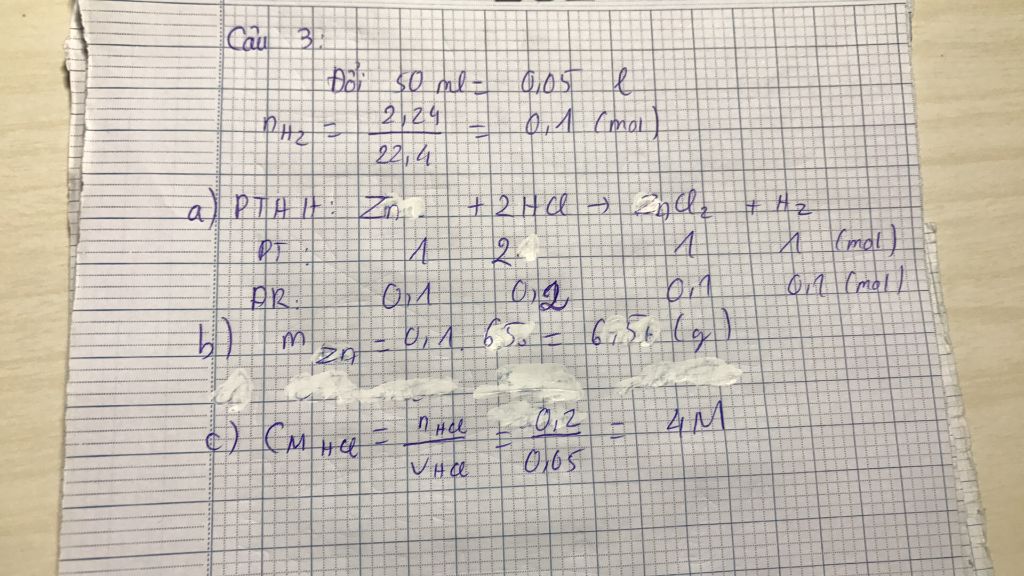 Câu 3:
Đổi 50 ml = 0,05 l
nH₂ = 2,24/22,4 = 0,1 (mol)
a) PTHH: Zn + 2HCl → ZnCl₂ + H₂
PT: 1 2 1 1 (mol)
PR: 0,1 0,2 0,1 0,1 (mol)
b) m Zn = 0,1. 65 = 6,5 (g)
c) CM HCl = nHCl/VHCl = 0,2/0,05 = 4M